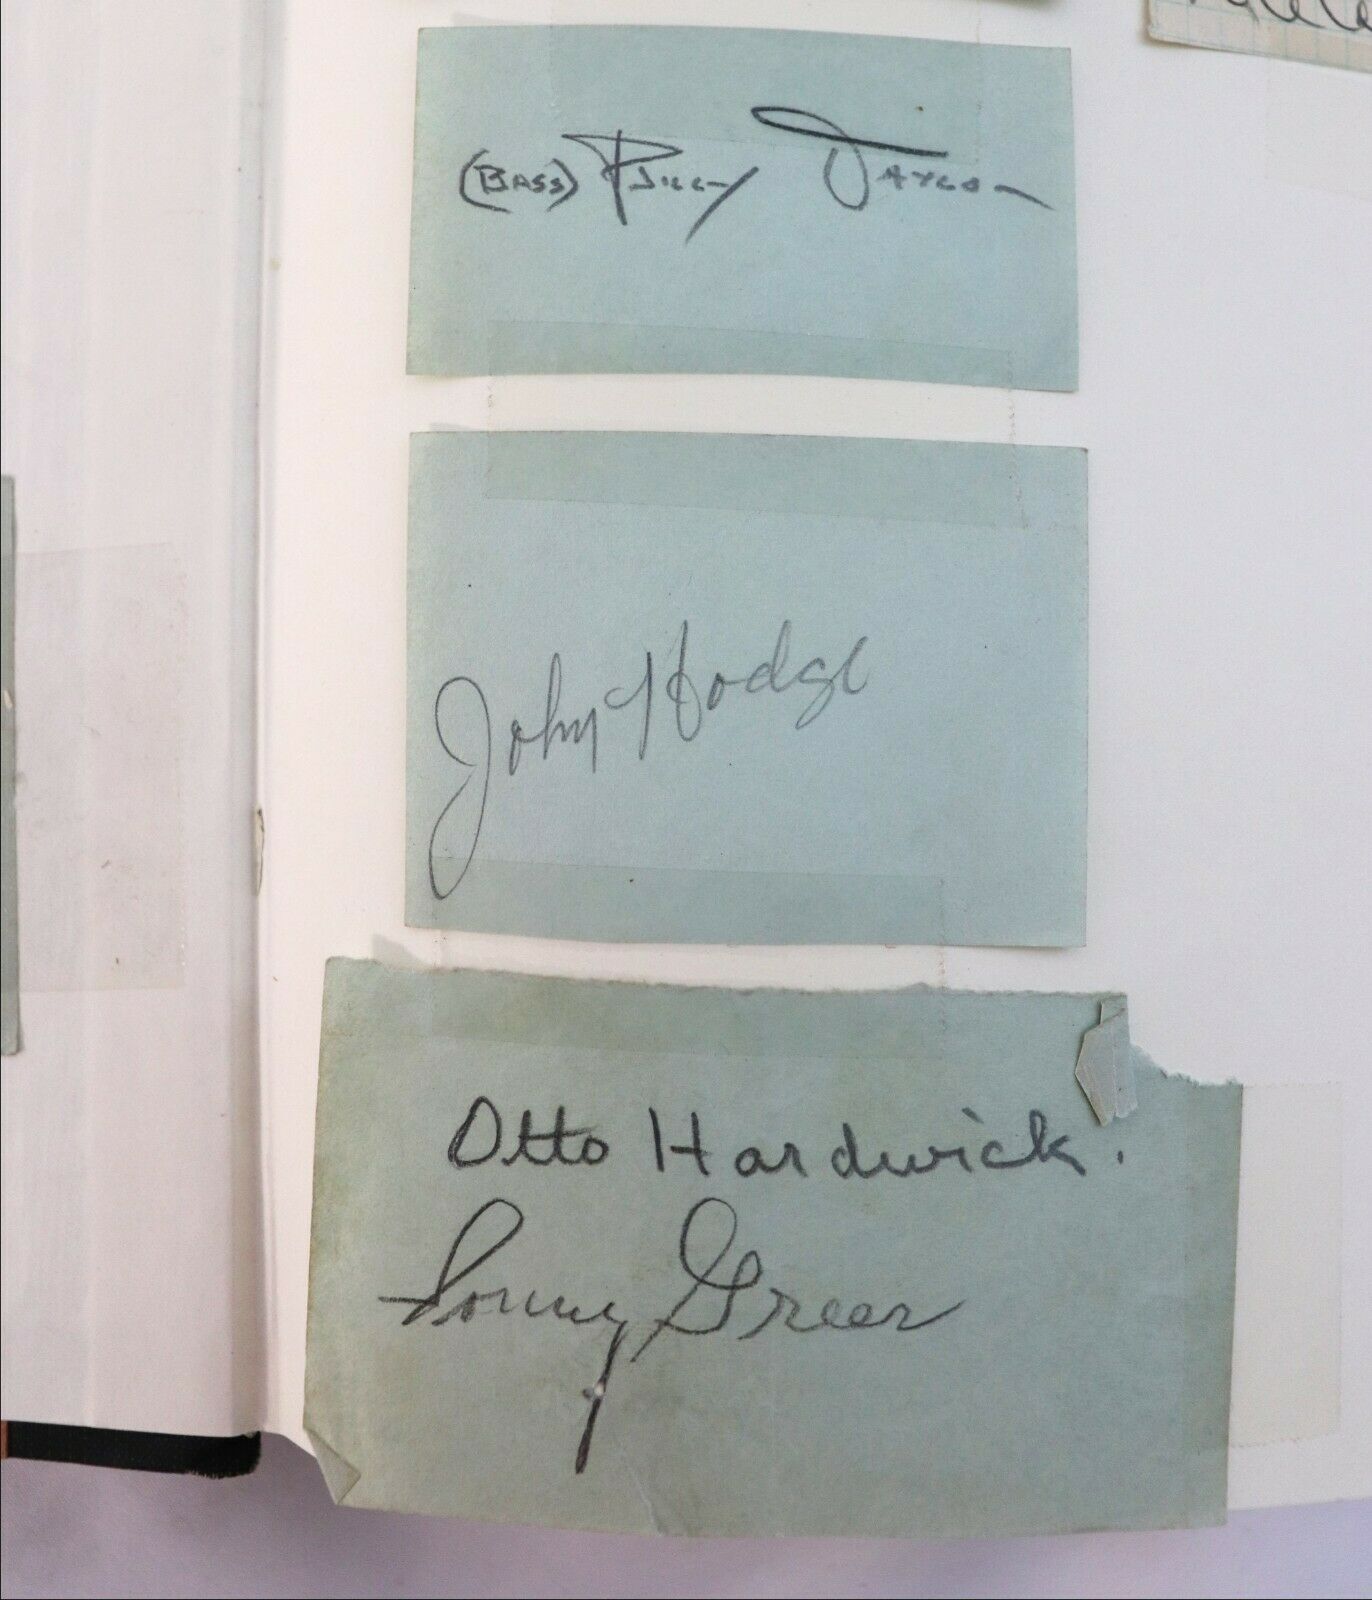 (BASS) Billy Taylor
John Hodge
Otto Hardwick.
Sonny Greer